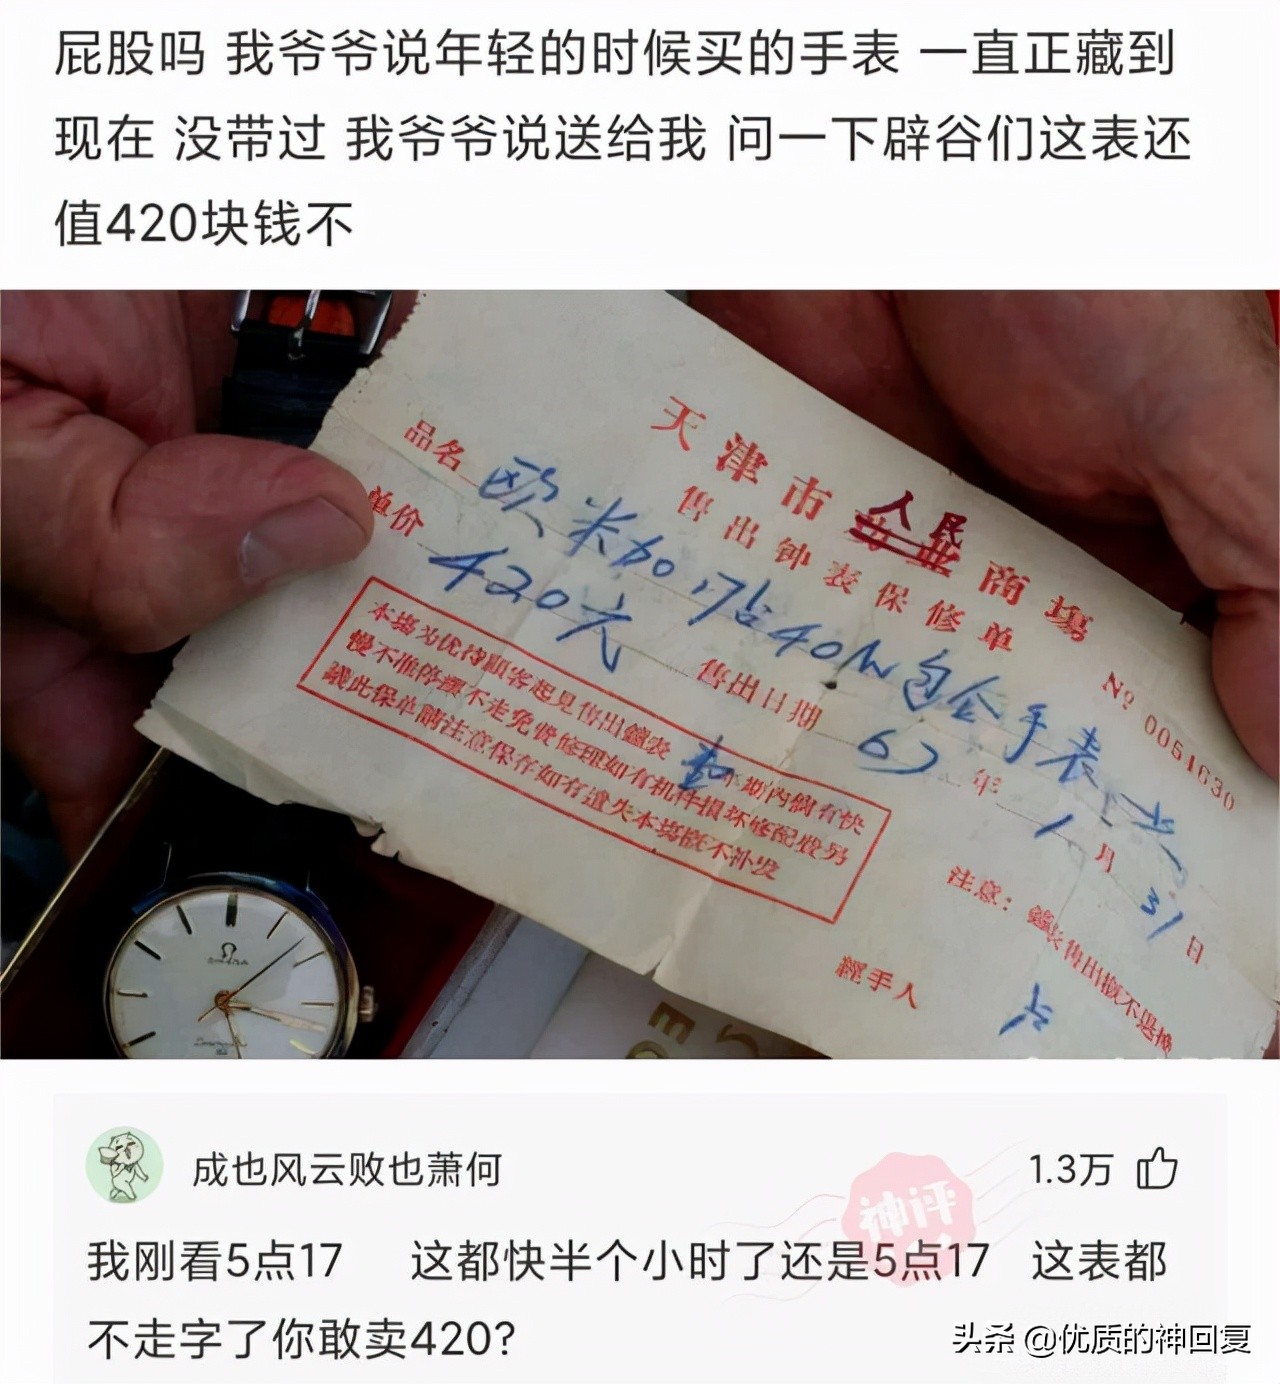 屁股吗 我爷爷说年轻的时候买的手表 一直正藏到
现在 没带过 我爷爷说送给我 问一下辟谷们这表还
值420块钱不
天津市人民商場
售出钟表保修单
№ 0051630
品名 欧米加17钻40m包金手表
单价 420元
售出日期 67年1月31日
本場为优待顧客起見售出鐘表 年期内偶有快
慢不准停擺不走免费修理如有机件損坏修配费另
議此保单請注意保存如有遺失本場概不补发
注意：鐘表售出概不退换
經手人
Ω
OMEGA
成也风云败也萧何
1.3万
神评
我刚看5点17 这都快半个小时了还是5点17 这表都
不走字了你敢卖420?
头条 @优质的神回复